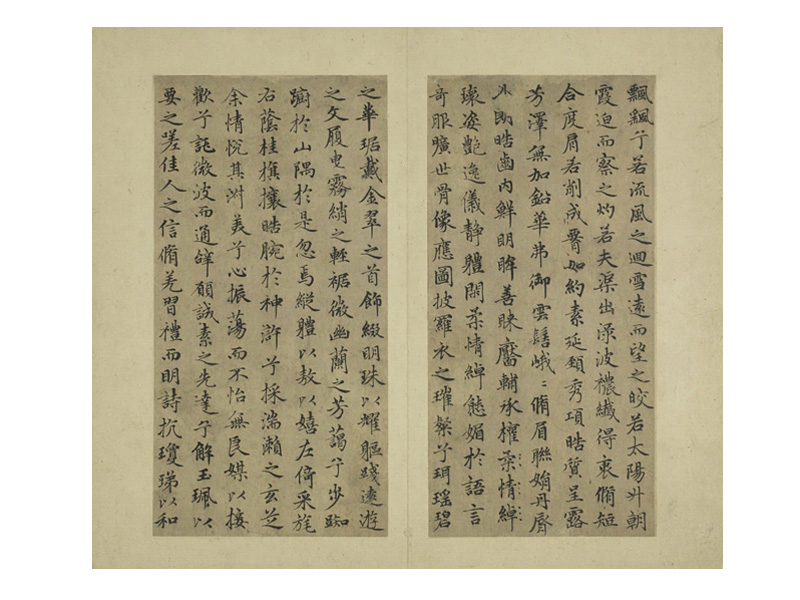 飄飖兮若流風之迴雪遠而望之皎若太陽升朝
霞迫而察之灼若夫渠出淥波穠纖得衷脩短
合度肩若削成腰如約素延頸秀項皓質呈露
芳澤無加鉛華弗御雲髻峨〻脩眉聯娟丹脣
外朗皓齒内鮮明眸善睞靨輔承權柔情綽
瓌姿艷逸儀靜體閑柔情綽態媚於語言
奇服曠世骨像應圖披羅衣之璀粲兮珥瑤碧
之華琚戴金翠之首飾綴明珠以耀軀踐遠遊
之文履曳霧綃之輕裾微幽蘭之芳藹兮步踟
躕於山隅於是忽焉縱體以敖以嬉左倚采旄
右蔭桂旗攘皓腕於神滸兮採湍瀨之玄芝
余情悅其淑美兮心振蕩而不怡無良媒以接
歡兮託微波而通辭願誠素之先達兮解玉珮以
要之嗟佳人之信脩羌習禮而明詩抗瓊珶以和